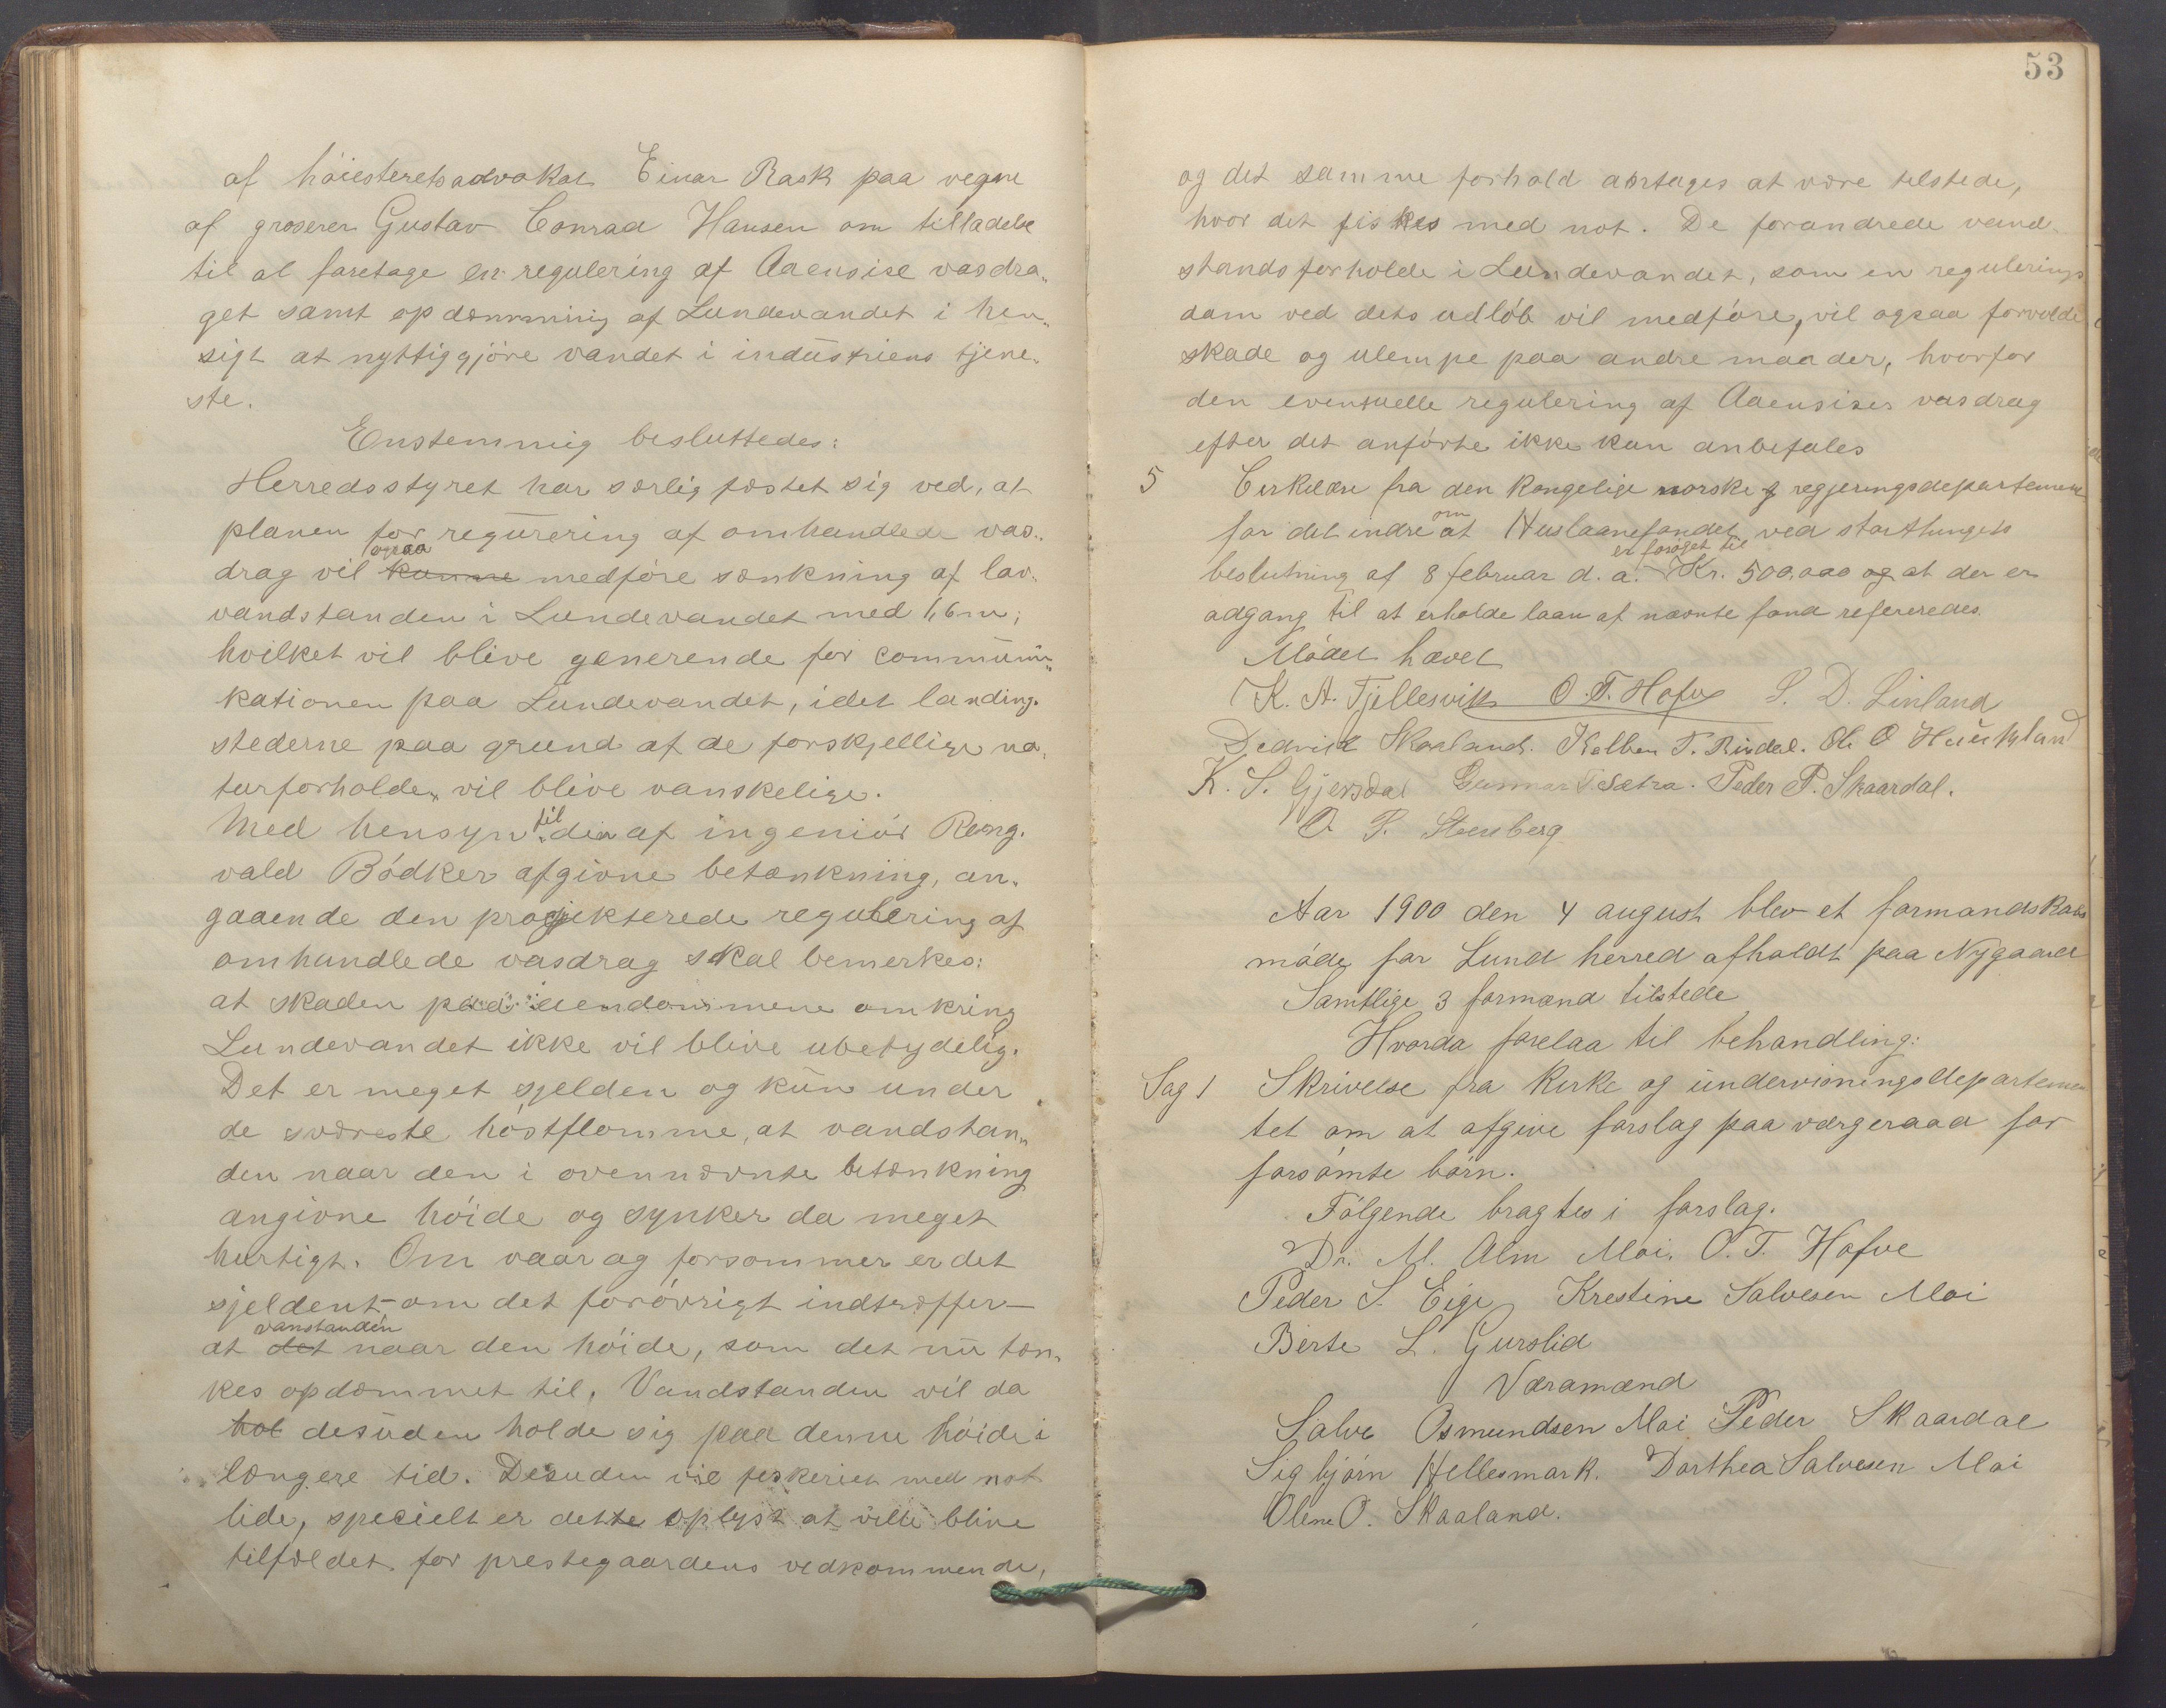 af höiesteretsadvokat Einar Rask paa vegne
af groserer Gustav Conrad Hansen om tilladelse
til at foretage en regulering af Aaensire vasdra„
get samt opdæmming af Lundevandet i hen„
sigt at nyttiggjöre vandet i industriens tjene„
ste.
Enstemmig besluttedes:
Herredsstyret har særlig fæstet sig ved, at
planen for regurering af omhandlede vas„
drag vil kunne ogsaa medföre sænkning af lav„
vandstanden i Lundevandet med 1,6 m;
hvilket vil blive generende for commüni„
kationen paa Lundevandet, idet landing„
stederne paa grund af de forskjellige na„
turforholde„ vil blive vanskelige.
Med hensyn til den af ingeniör Rong„
vald Bödker afgivne betænkning, an„
gaaende den projekterede regulering af
omhandlede vasdrag skal bemerkes:
at skaden paa eiendommene omkring
Lundevandet ikke vil blive ubetydelig.
Det er meget sjelden og kün under
de sværeste höstflomme, at vandstan„
den naar den i ovennævnte betænkning
angivne höide og synker da meget
hurtigt. Om vaar og forsommer er det
sjeldent – om det forövrigt indtræffer –
at det vanstanden naar den höide, som det nü tæn„
kes opdæmmet til. Vandstanden vil da
hol desüden holde sig paa denne höide i
længere tid. Desuden vil fiskeriet med not
lide, specielt er dette oplyst at ville blive
tilfældet for prestegaardens vedkommende,
53
og det samme forhold antages at være tilstede,
hvor det fiskes med not. De forandrede vand„
standsforholde i Lundevandet, som en regulerings
dam ved dets udlöb vil medföre, vil ogsaa forvolde
skade og ulempe paa andre maader, hvorfor
den eventuelle regulering af Aaensires vasdrag
efter det anförte ikke kan anbefales
5 Cirkulære fra den kongelige norske regjeringsdepartement
for det indre om at Huslaanefondet ved storthingets
beslutning af 8 februar d. a. er forøget til Kr. 500.000 og at der er
adgang til at erholde laan af nævnte fond refereredes.
Mödet hævet
K. A. Fjellesvik O. T. Hofve S. D. Linland
Dedrick Skaaland. Kolben T. Rindal. Ole O Haukland
K. S. Gjersdal Gunnar T Sætra. Peder P. Skaardal.
O. P. Steenberg
Aar 1900 den 4 august blev et formandskabs
möde for Lund herred afholdt paa Nygaard
Samtlige 3 formænd tilstede
Hvorda forelaa til behandling:
Sag 1 Skrivelse fra Kirke og undervisningsdepartemen
tet om at afgive forslag paa værgeraad for
forsömte börn.
Fölgende bragtes i forslag.
Dr. M. Alm Moi. O. T. Hofve
Peder S. Eige Krestine Salvesen Moi
Berte L. Gurslid
Varamænd
Salve Osmundsen Moi Peder Skaardal
Sigbjörn Hellesmark. Dorthea Salvesen Moi
Olene O. Skaaland.